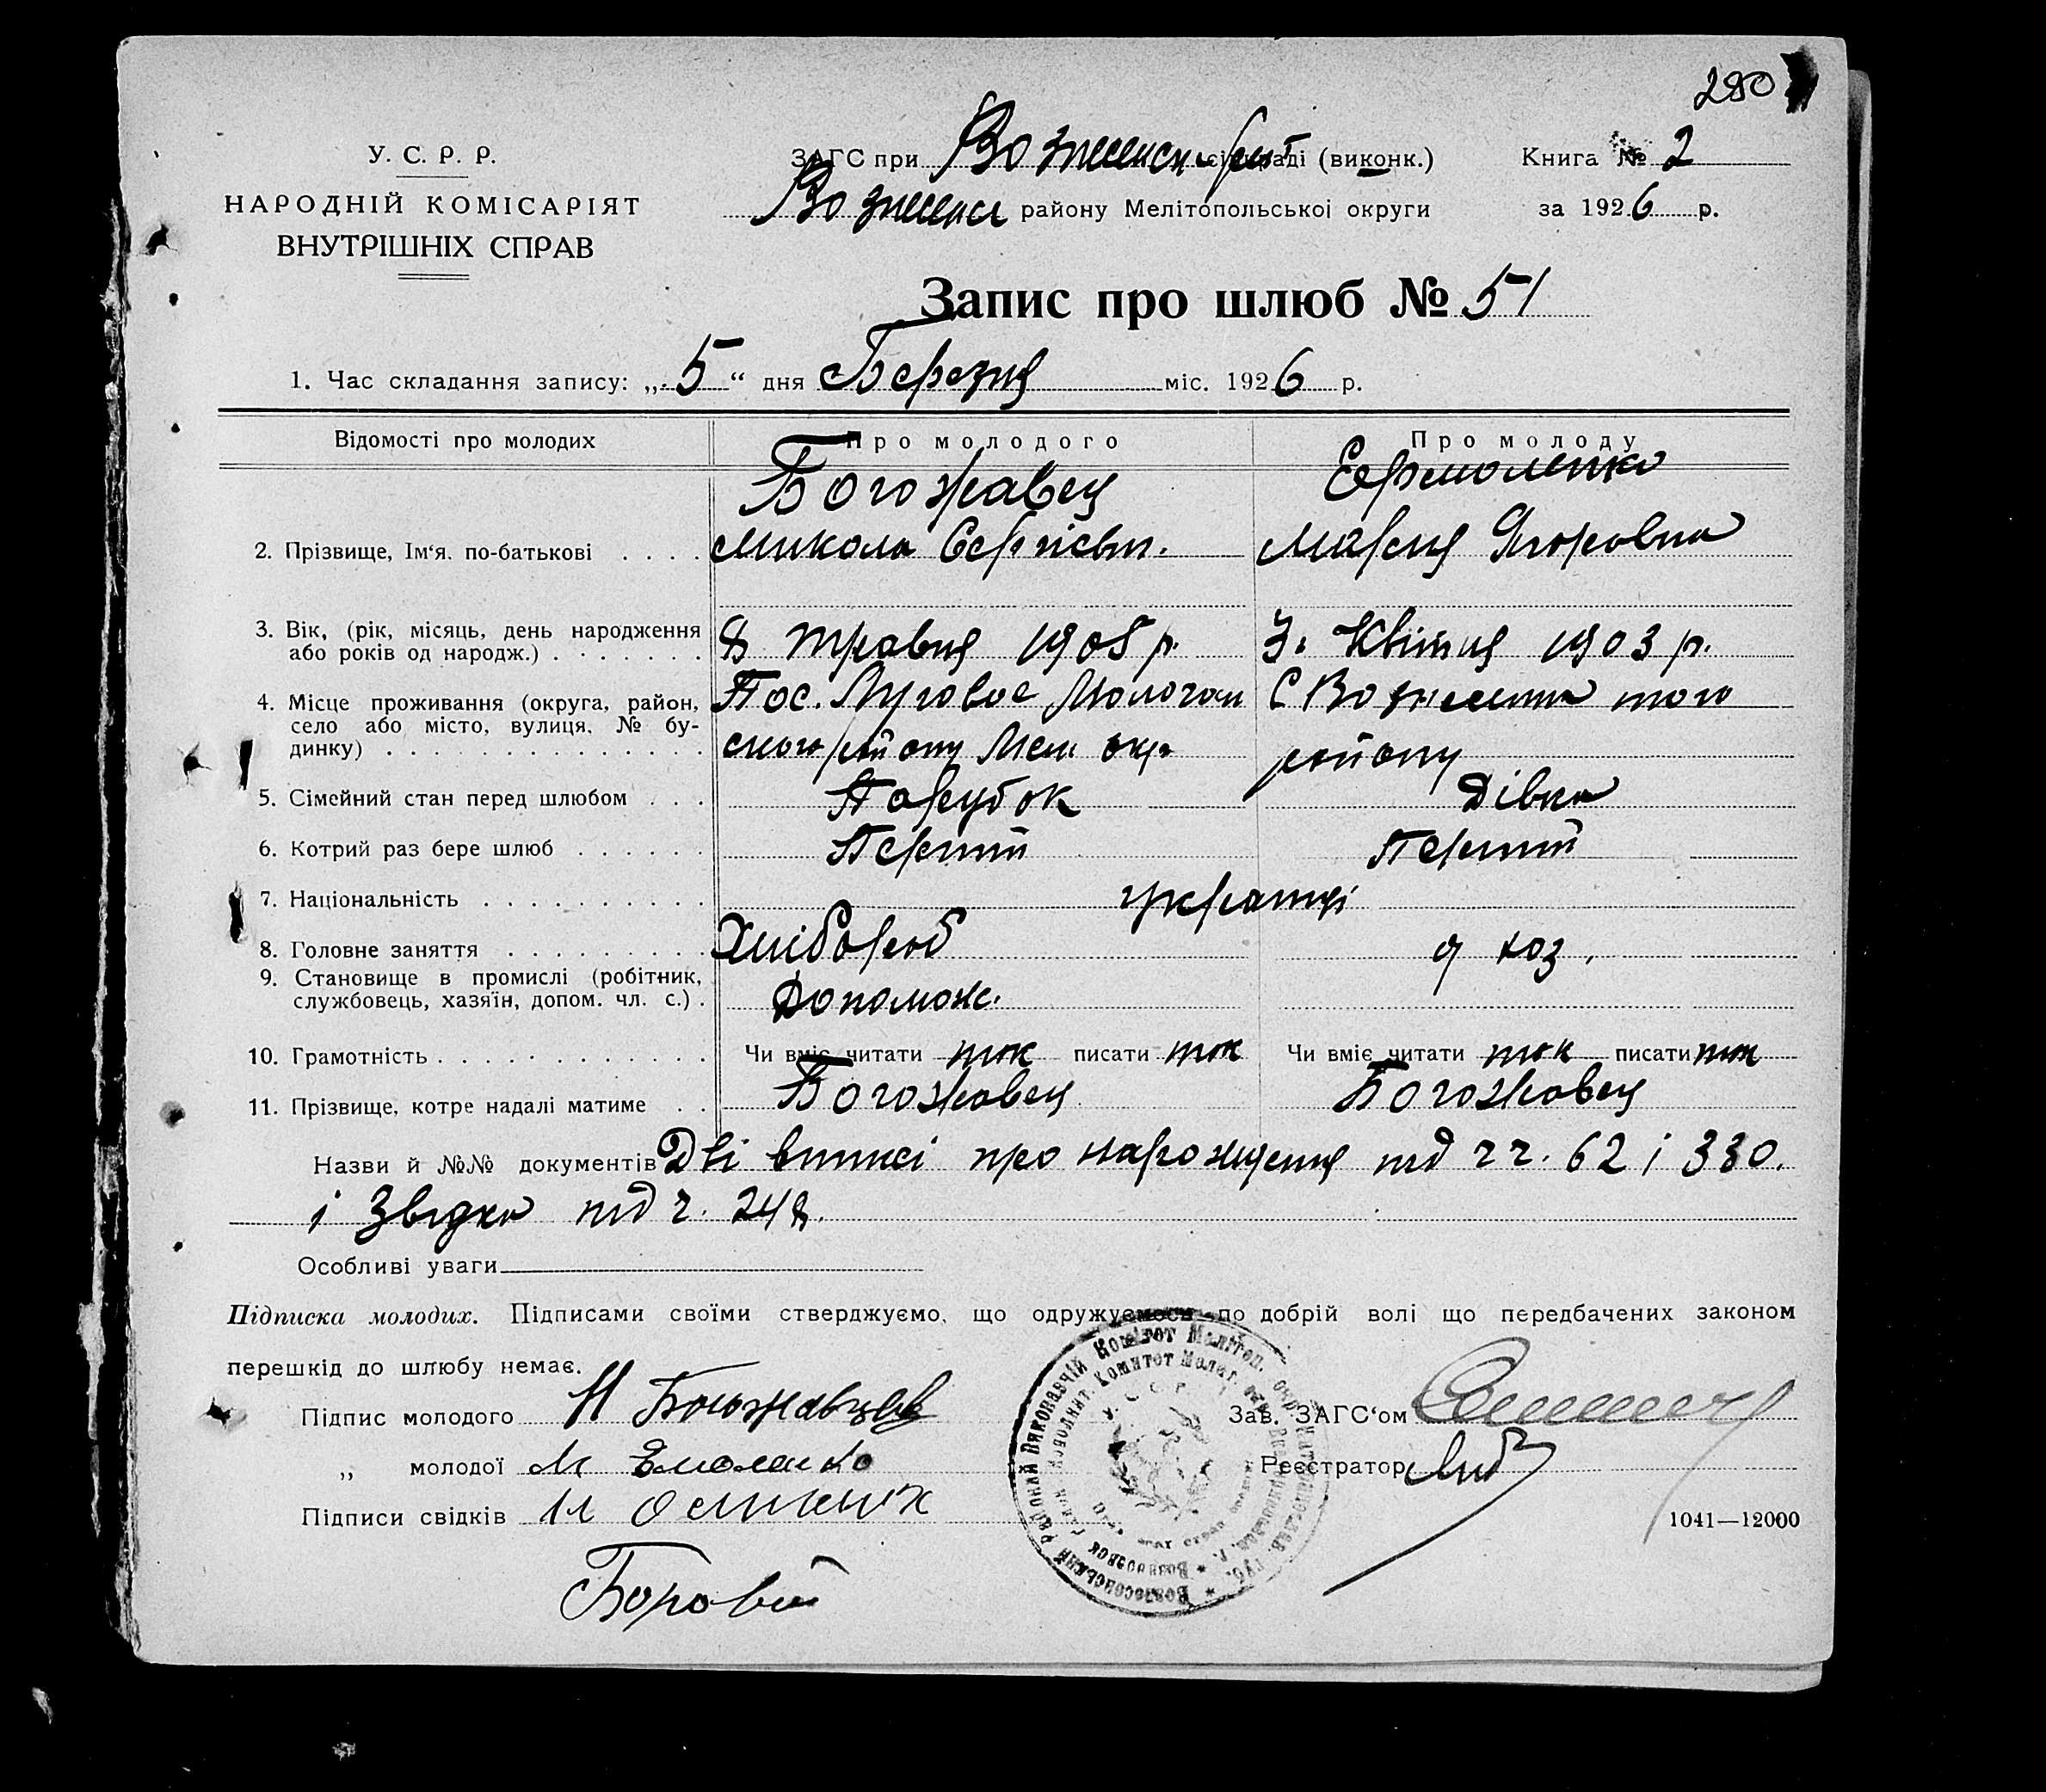 280
У. С. Р. Р.
НАРОДНІЙ КОМІСАРІЯТ
ВНУТРІШНІХ СПРАВ
ЗАГС при Вознесенск раді (виконк.)
Вознесенс району Мелітопольської округи
Книга № 2
за 1926 р.
Запис про шлюб № 51
1. Час складання запису: „5“ дня Березня міс. 1926 р.
Відомості про молодих Про молодого Про молоду
Богожавец Ефрмоленко
2. Прізвище, Ім‘я, по-батькові Микола Сергієвич. Мария Ягоровна
3. Вік, (рік, місяць, день народження 8 травня 1905 р. 3. Квітня 1903 р.
або років од народж.)
4. Місце проживання (округа, район, Пос. Луговое Молочан С Вознесенка того
село або місто, вулиця, № бу-
динку) ского району Мел окр району
5. Сімейний стан перед шлюбом Парубок Дівка
6. Котрий раз бере шлюб Перший Перший
7. Національність українці
8. Головне заняття Хлібороб д хоз.
9. Становище в промислі (робітник,
службовець, хазяїн, допом. чл. с.) Допомож.
10. Грамотність Чи вміє читати так писати так Чи вміє читати так писати так
11. Прізвище, котре надалі матиме Богожавец Богожавец
Назви й №№ документів Дві виписі про народження під чч. 62 і 330.
і Звідка під ч. 248.
Особливі уваги
Підписка молодих. Підписами своїми стверджуємо, що одружуємося по добрій волі що передбачених законом
перешкід до шлюбу немає.
Підпис молодого Н Богожавцев Зав. ЗАГС‘ом
„ молодої М Эмоленко Реєстратор
Підписи свідків
1041—12000
Боровий